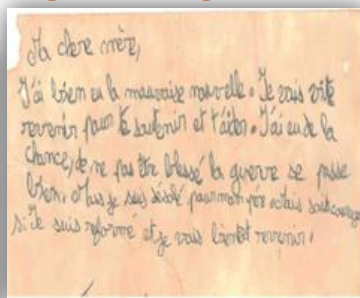 Ma chere mère,
J'ai bien eu la mauvaise nouvelle. Je vais vite
revenir pour te soutenir et t'aider. J'ai eu de la
chance, de ne pas être blessé la guerre se passe
bien. Mais je suis désolé pour mon père. Mais
si Je suis reformé et je vais bientot revenir.